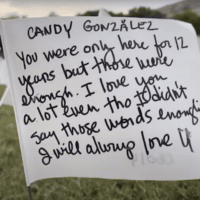 CANDY GONZÁLEZ
You were only here for 12
years but those were
enough. I love you
a lot even tho I didn't
say those words enough
I will always love U